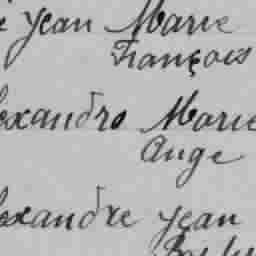 e Jean Marie
François
lexandre Marie
Ange
lexandre Jean